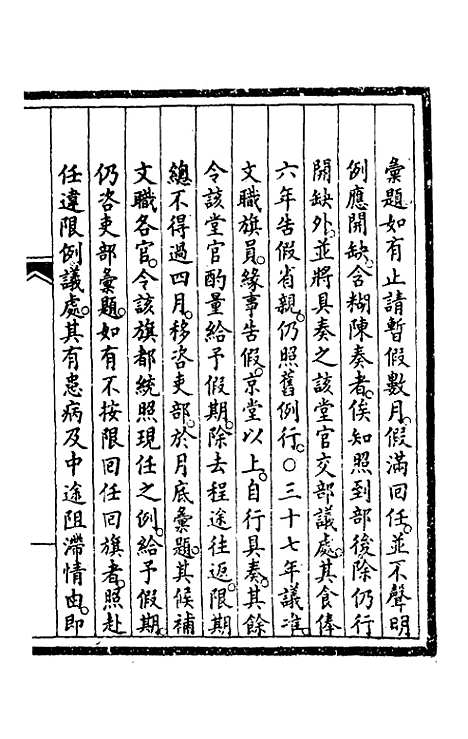 彙題如有止請暫假數月。假滿回任。並不聲明
例應開缺。含糊陳奏者。俟知照到部後除仍行
開缺外。並將具奏之該堂官交部議處。其食俸
六年告假省親。仍照舊例行。○三十七年議准。
文職旗員。緣事告假。京堂以上。自行具奏。其餘
令該堂官酌量給予假期。除去程途往返。限期
總不得過四月。移咨吏部。於月底彙題。其候補
文職各官。令該旗都統照現任之例。給予假期。
仍咨吏部彙題。如有不按限回任回旗者。照赴
任違限例議處。其有患病及中途阻滯情由。即